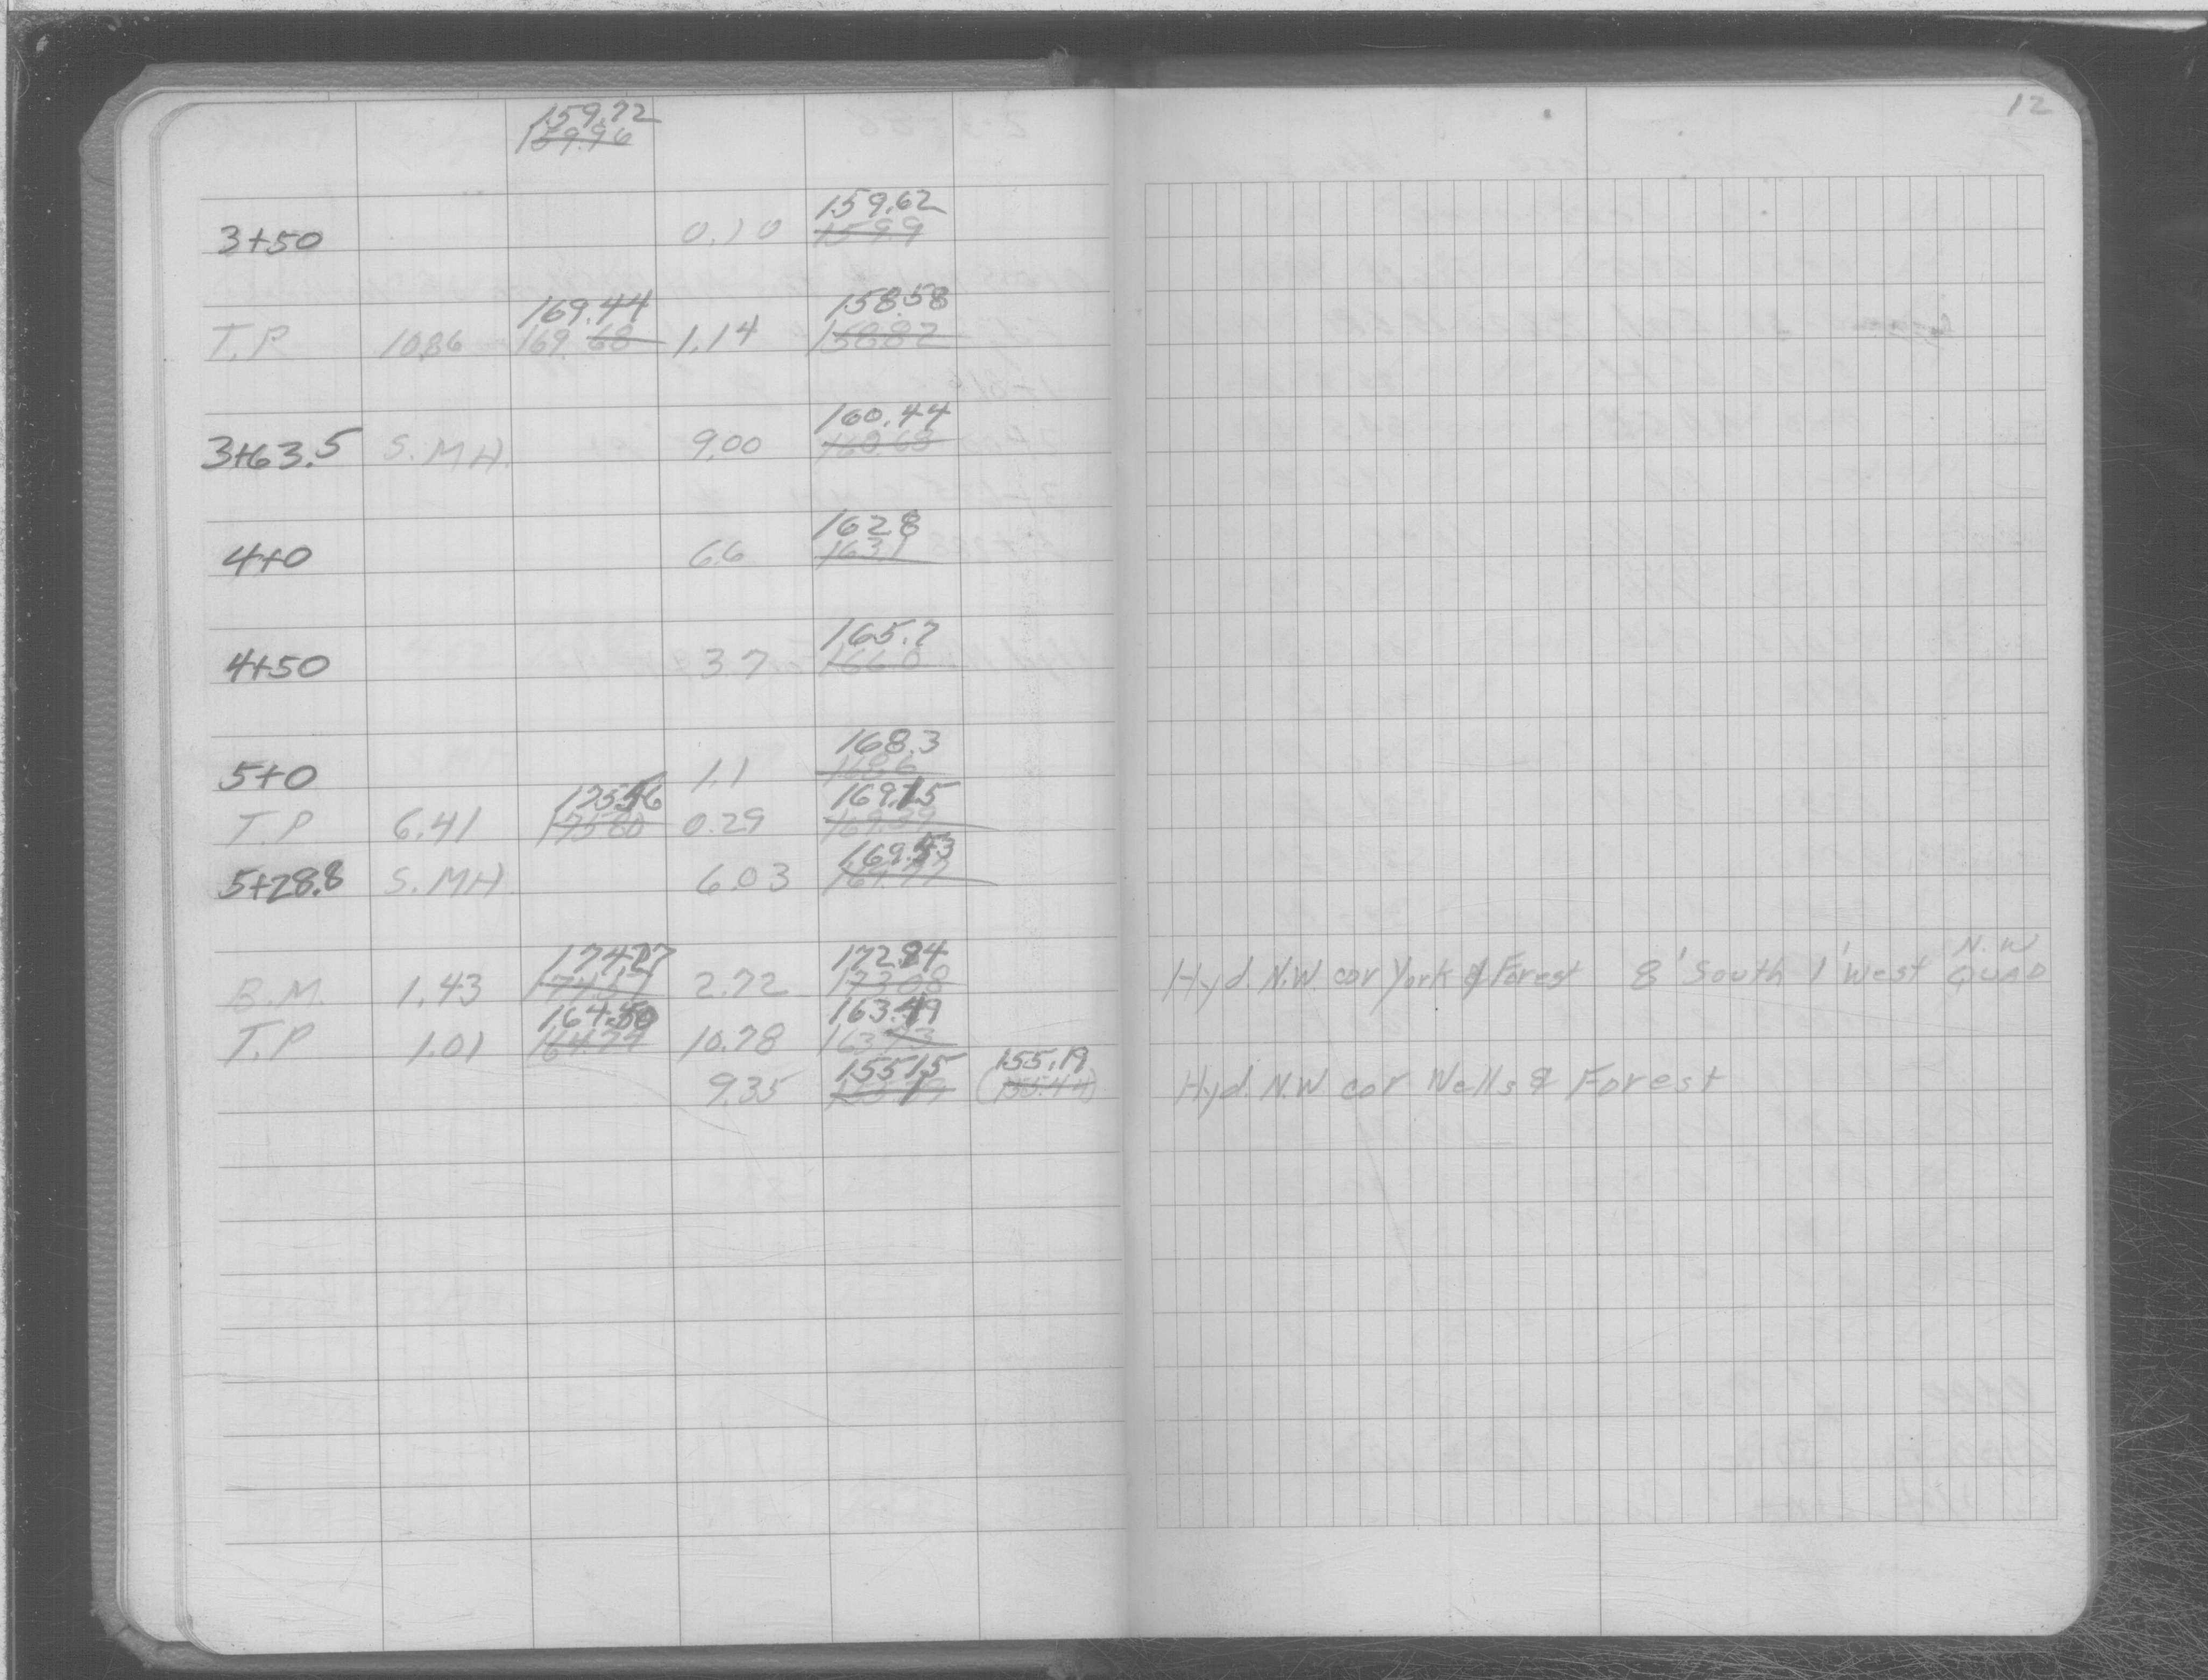 12
159.72
159.96
159.62
3+50 0.10 159.9
169.44 158.58
T.P 10.86 169.68 1.14 158.82
160.44
3+63.5 S.MH. 9.00 160.68
162.8
4+0 6.6 163.1
165.7
4+50 3.7 166.0
168.3
5+0 1.1 168.6
175.56 169.15
T.P 6.41 175.80 0.29 169.39
169.53
5+28.8 S.MH 6.03 169.77
174.27 172.84 N.W
B.M. 1.43 174.51 2.72 173.08 Hyd. N.W. cor York & Forest 8' South 1' West QUAD
164.50 163.49
T.P 1.01 164.74 10.78 163.73
155.15 155.19
9.35 (155.44) Hyd. N.W cor Wells & Forest